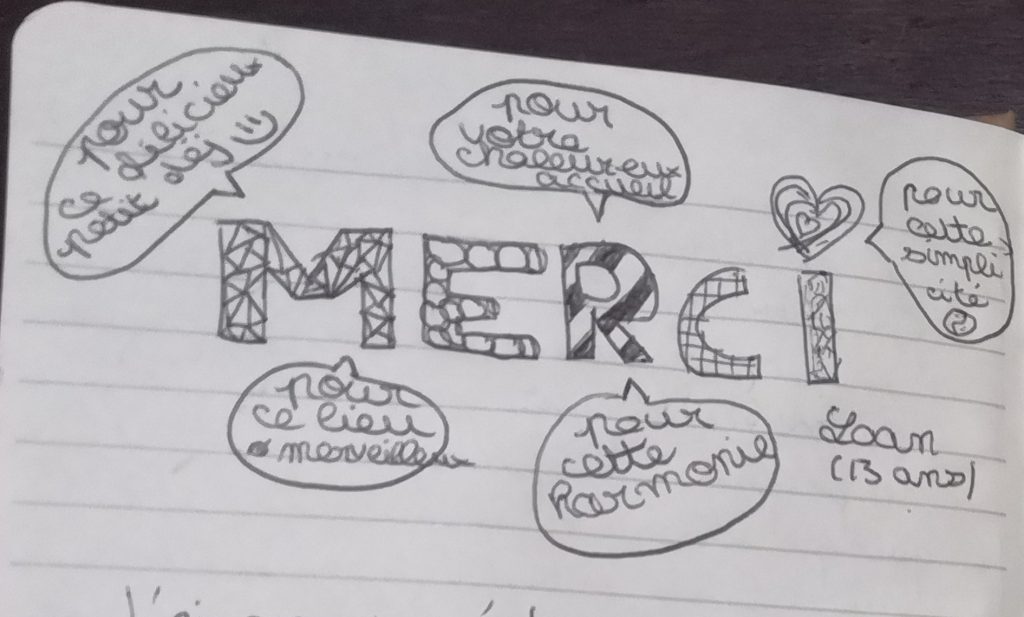 pour
ce délicieux
petit déj
pour
votre
chaleureux
accueil
pour
cette
simpli
cité
MERCI
pour
ce lieu
merveilleux
pour
cette
harmonie
Loan
(13 ans)